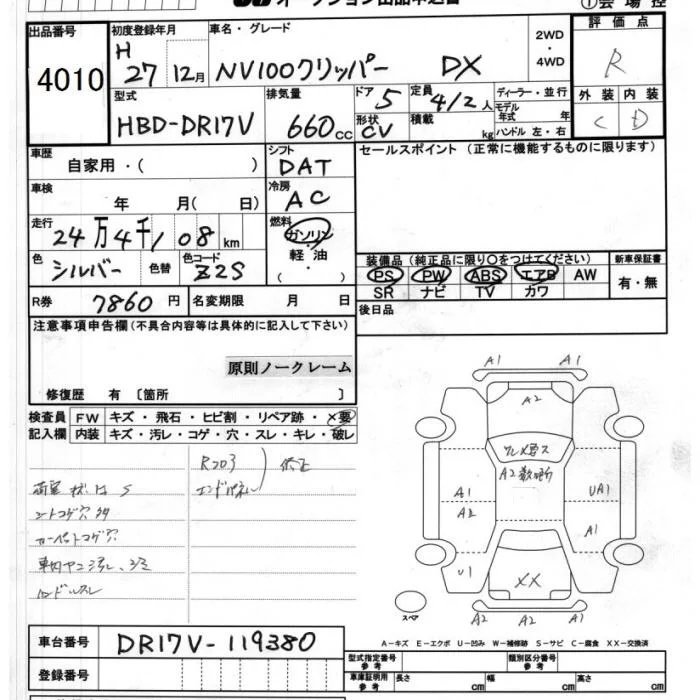 オークション出品申込書
①会場控
出品番号
4010
初度登録年月
H
27 12月
車名・グレード
NV100クリッパー DX
2WD
・
4WD
評価点
R
型式
HBD-DR17V
排気量
660cc
ドア
5
定員
4/2人
形状
CV
積載
kg
ディーラー・並行
モデル年式 年
ハンドル 左・右
外装 内装
C D
車歴
自家用・( )
シフト
DAT
セールスポイント(正常に機能するものに限ります)
車検
年 月( 日)
冷房
AC
走行
24万4千108km
燃料
ガソリン
軽油
・
色
シルバー
色替
色コード
Z2S
装備品(純正品に限り〇をつけてください)
新車保証書
PS PW ABS エアB AW
有・無
SR ナビ TV カワ
R券
7860円
名変期限 月 日
後日品
注意事項申告欄(不具合内容等は具体的に記入して下さい)
原則ノークレーム
修復歴 有 〔箇所 〕
検査員
記入欄
FW キズ・飛石・ヒビ割・リペア跡・×要
内装 キズ・汚レ・コゲ・穴・スレ・キレ・破レ
Rコーナ
エンドパネル
修正
S
シートコゲ穴
カーペットコゲ穴
ハンドルスレ
A1 A1
A2
A2
A1
A2
UA1
A1
U1
XX
A2 A2 A1
スペア
A-キズ E-エクボ U-凹み W-補修跡 S-サビ C-腐食 XX-交換済
車台番号
DR17V-119380
登録番号
型式指定番号
参考
類別区分番号
参考
車庫証明用
参考
長さ cm 幅 cm 高さ cm